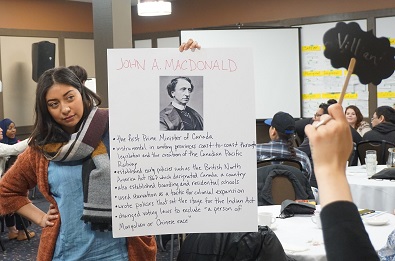 JOHN A. MACDONALD
• the first Prime Minister of Canada
• instrumental in uniting provinces coast to coast through
legislation and the creation of the Canadian Pacific
Railway
• established early policies such as the British North
America Act 1867 which designated Canada a country
• also established boarding and residential schools
• used starvation as a tactic for colonial expansion
• wrote policies that set the stage for the Indian Act
• changed voting laws to exclude "a person of
Mongolian or Chinese race"
Villain